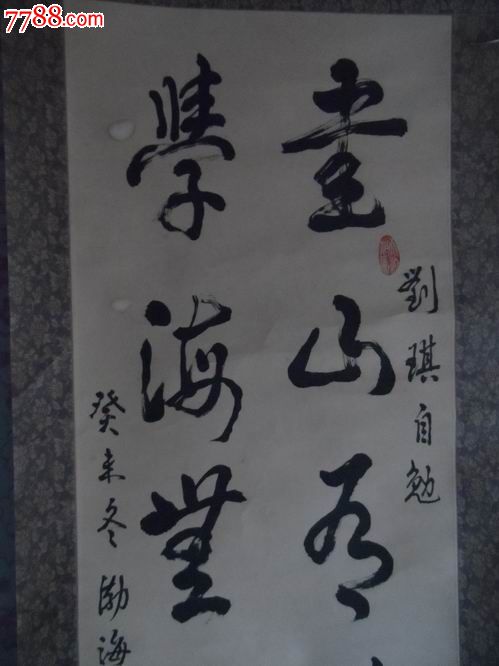 7788.com
劉琪自勉
書山有
學海無
癸未冬渤海